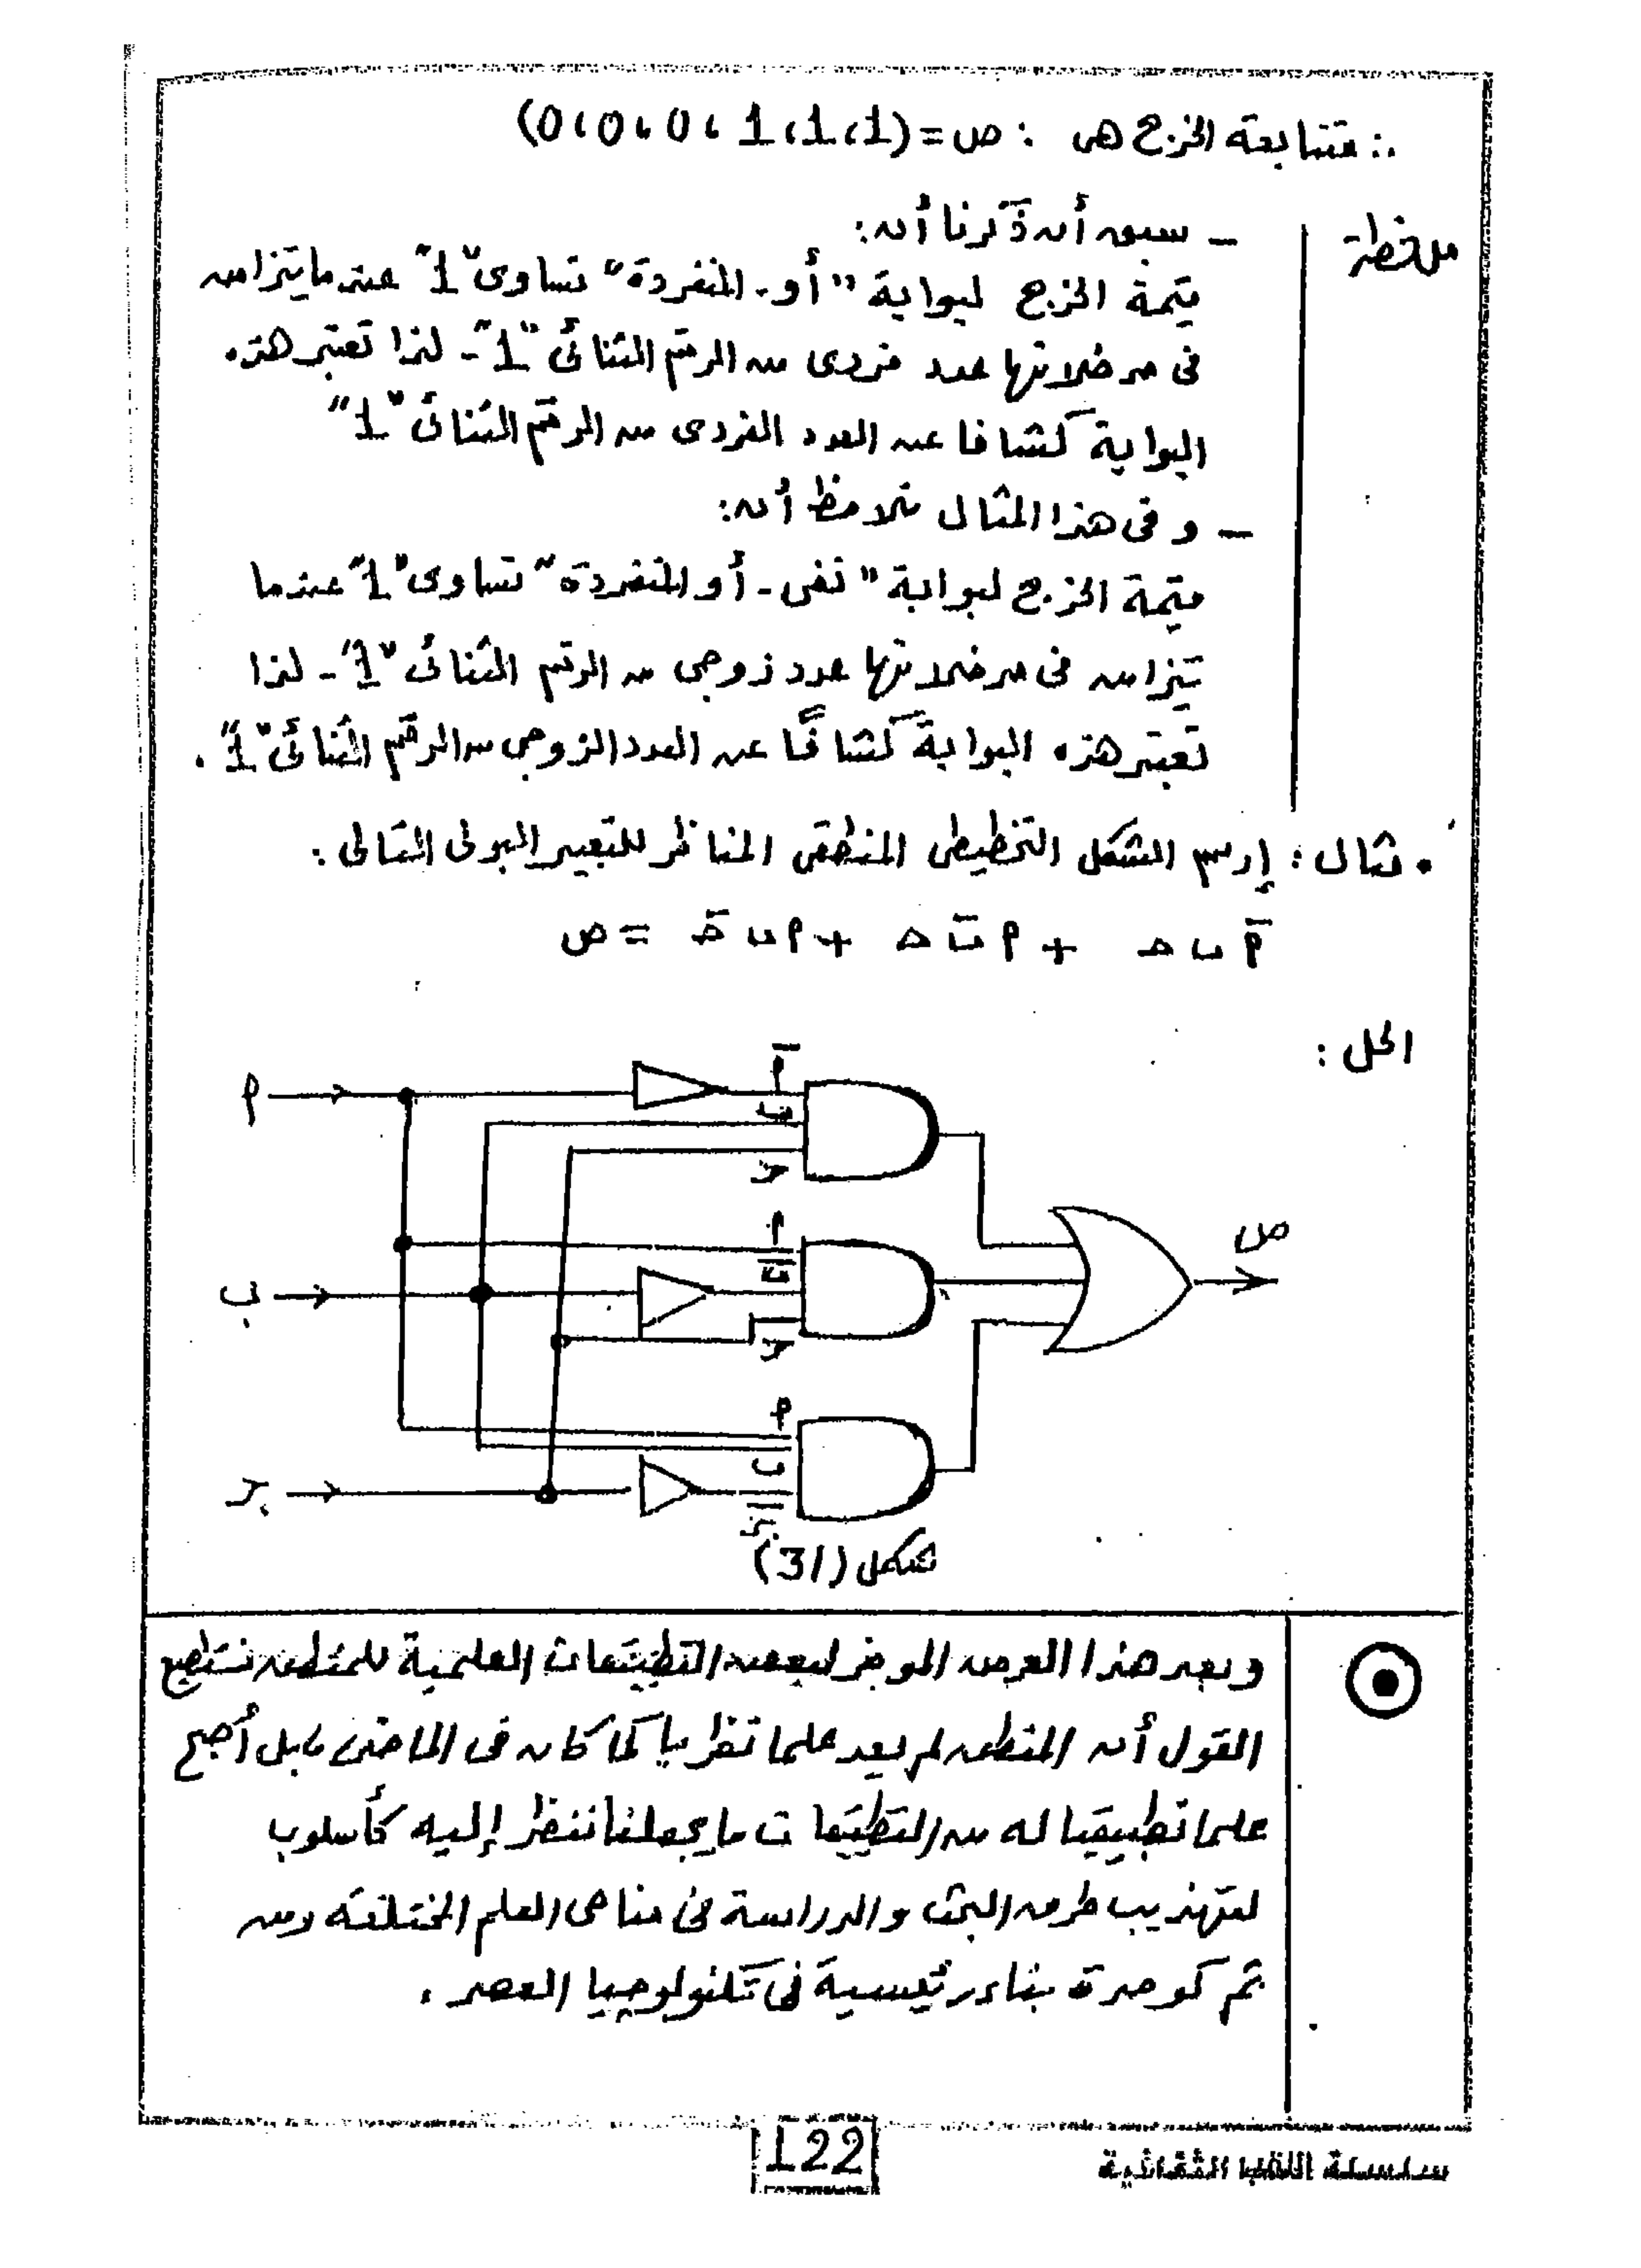 ∴ متتابعة الخرج هى : ص = (1،1،1 ،0،0،0)
ملاحظة
– سبق أن ذكرنا أن:
قيمة الخرج لبوابة "أو - المنفردة" تساوى "1" عندما يتزامن
فى مدخلاتها عدد فردى من الرقم الثنائى "1" - لذا تعتبر هذه
البوابة كشافا عن العدد الفردى من الرقم الثنائى "1"
– و فى هذا المثال نلاحظ أن:
قيمة الخرج لبوابة "نفى - أو المنفردة" تساوى "1" عندما
يتزامن فى مدخلاتها عدد زوجى من الرقم الثنائى "1" - لذا
تعتبر هذه البوابة كشافًا عن العدد الزوجى من الرقم الثنائى "1".
• مثال : إرسم الشكل التخطيطى المنطقى المناظر للتعبير البولى التالى :
ص = أ ب جـ̄ + أ ب̄ جـ + أ̄ ب جـ
الحل :
أ
أ̄
ب
جـ
أ
ب̄
ص
ب
جـ
أ
ب
جـ
جـ̄
شكل (31)
وبعد هذا العرض الموجز لبعض التطبيقات العلمية للمنطق نستطيع
القول أن المنطق لم يعد علما نظريا كما كان فى الماضى، بل أصبح
علما تطبيقيا له من التطبيقات ما يجعلنا ننظر إليه كأسلوب
لتهذيب طرق البحث والدراسة فى مناحى العلم المختلفة ومن
ثم كوحدة بناء رئيسية فى تكنولوجيا العصر .
122
سلسلة الثقافية